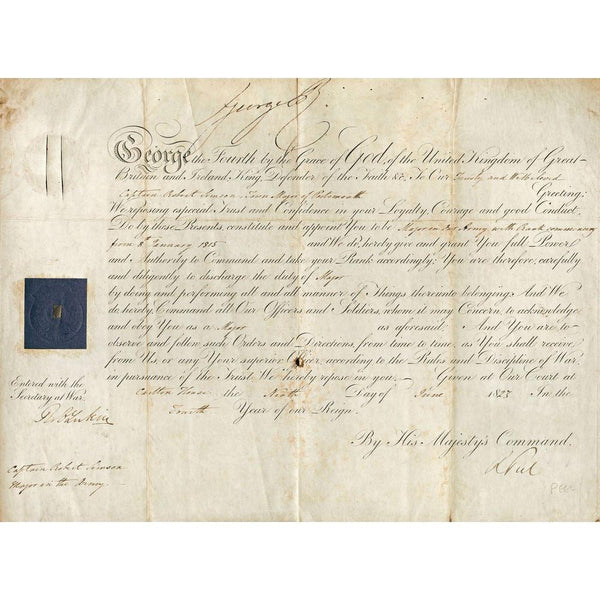 George R.
George the Fourth by the Grace of God, of the United Kingdom of Great-
Britain and Ireland, King, Defender of the Faith &c. To Our Trusty and Well-beloved
Captain Robert Town Major of Portsmouth Greeting:
We reposing especial Trust and Confidence in your Loyalty, Courage and good Conduct,
Do by these Presents, constitute and appoint You to be Major in Our Army with Rank
from 8th January 1815 and We do hereby give and grant You full Power
and Authority to Command and take your Rank accordingly; You are therefore, carefully
and diligently to discharge the duty of Major
by doing and performing all and all manner of Things thereunto belonging: And We
do hereby Command all Our Officers and Soldiers, whom it may Concern, to acknowledge
and obey You as a Major as aforesaid. And You are to
observe and follow such Orders and Directions, from time to time, as You shall receive
from Us, or any Your superior Officer, according to the Rules and Discipline of War,
in pursuance of the Trust We hereby repose in you. Given at Our Court at
Carlton House the Ninth Day of June 1823 In the
Fourth Year of our Reign.
Entered with the
Secretary at War.
By His Majesty's Command.
R Peel
PEEL
Captain Robert
Major in the Army.